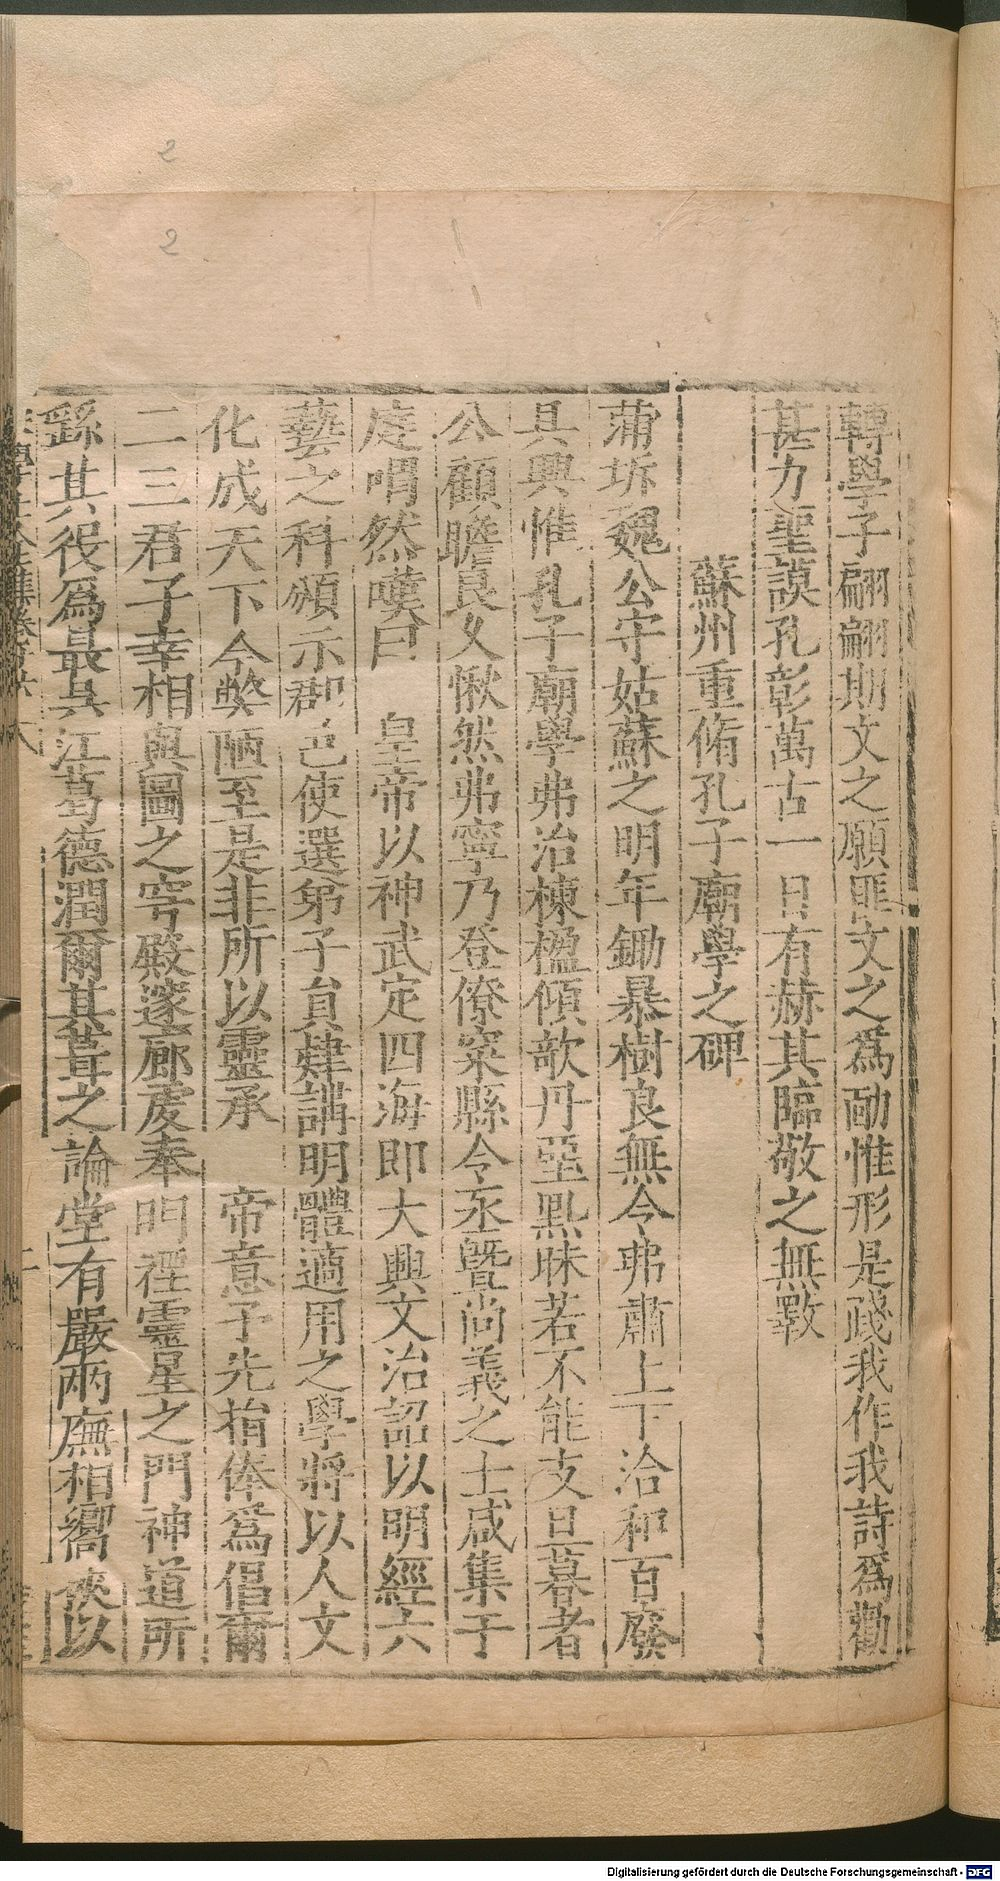 轉學子翩翩期文之願匪文之爲勵惟形是踐我作我詩爲勸
甚力聖謨孔彰萬古一日有赫其臨敬之無斁
蘇州重脩孔子廟學之碑
蒲圻魏公守姑蘇之明年鋤暴樹良無令弗肅上下洽和百廢
具興惟孔子廟學弗治棟楹傾欹丹堊黑昧若不能支旦暮者
公顧瞻良久愀然弗寧乃登僚寀縣令丞暨尚義之士咸集于
庭喟然嘆曰 皇帝以神武定四海即大興文治詔以明經六
藝之科頒示郡邑使選弟子員肄講明體適用之學將以人文
化成天下今獘陋至是非所以靈承 帝意予先捐俸爲倡爾
二三君子幸相與圖之穹殿邃廊虔奉明禋靈星之門神道所
繇其役爲最具江葛德潤爾其葺之論堂有嚴兩廡相嚮俠以
2
2
Digitalisierung gefördert durch die Deutsche Forschungsgemeinschaft - DFG